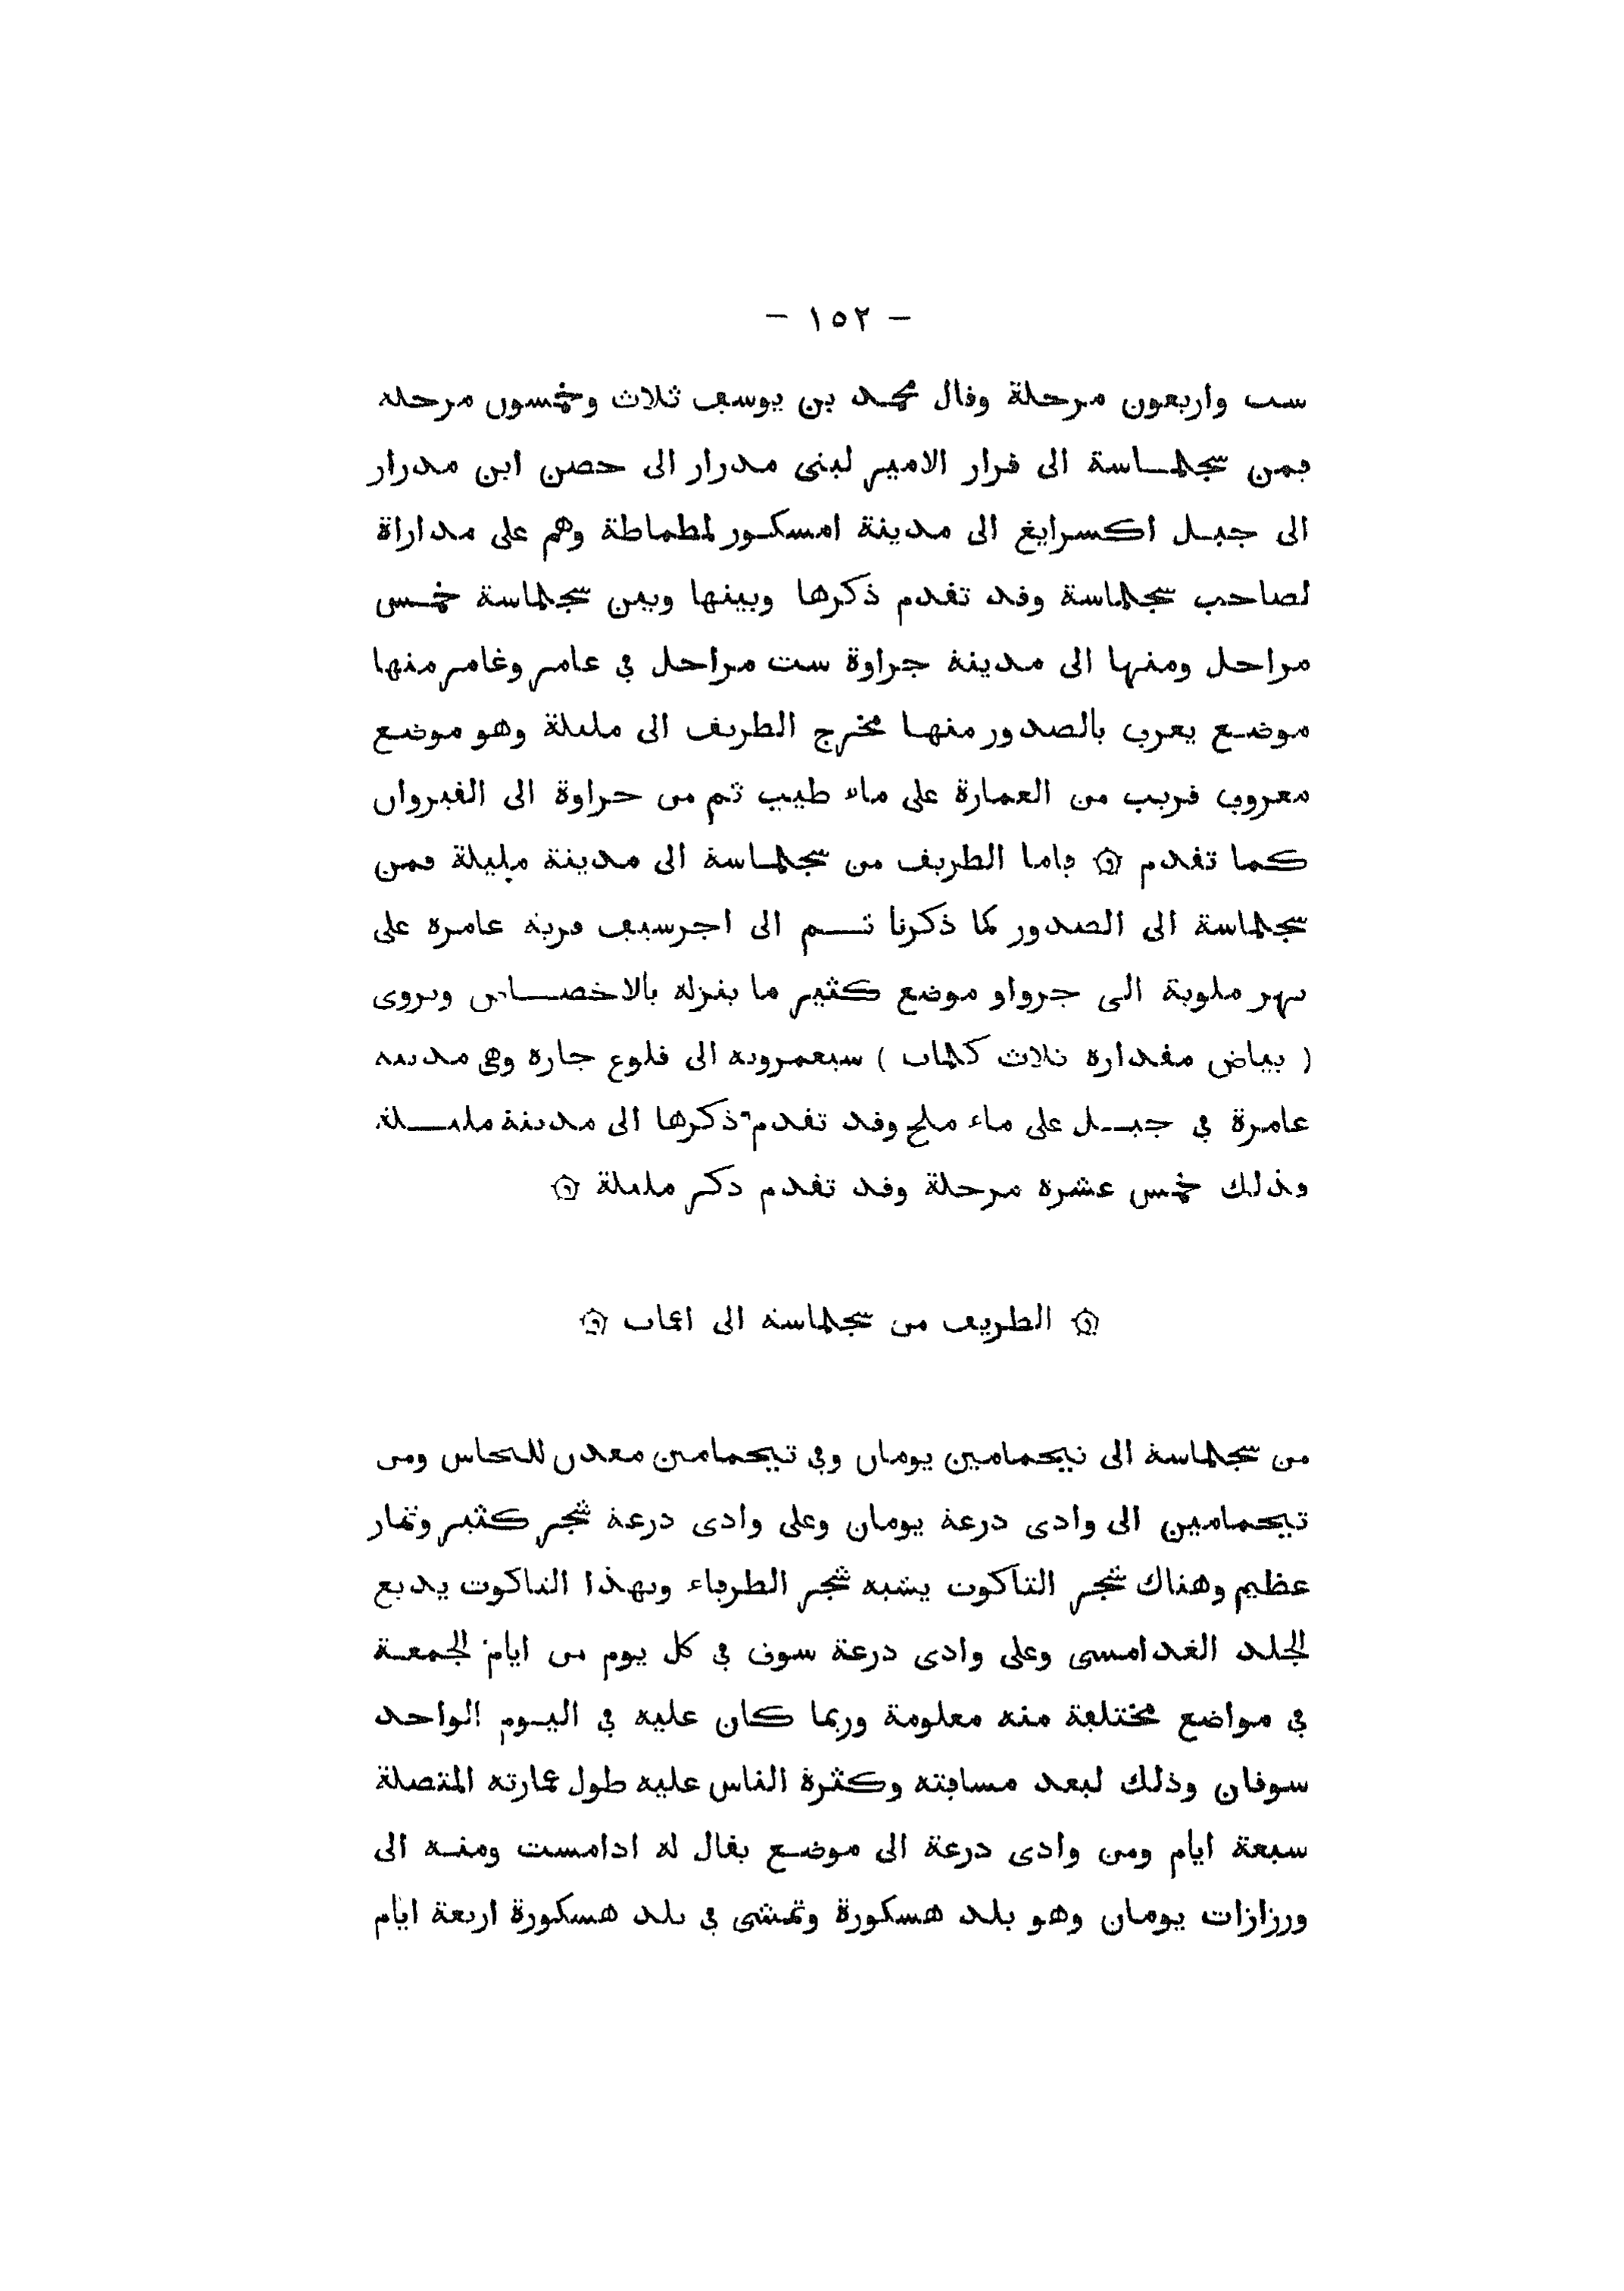 — ١٥٢ —
ست واربعون مرحلة وقال محمد بن يوسف ثلاث وخمسون مرحلة
فمن سجلماسة الى قرار الامير لبنى مدرار الى حصن ابن مدرار
الى جبل اكسرايغ الى مدينة امسكور لمطماطة وهم على مداراة
لصاحب سجلماسة وقد تقدم ذكرها وبينها وبين سجلماسة خمس
مراحل ومنها الى مدينة جراوة ست مراحل في عامر وغامر منها
موضع يعرف بالصدور منها مخرج الطريق الى مليلة وهو موضع
معروف قريب من العمارة على ماء طيب ثم من جراوة الى القيروان
كما تقدم ۞ فاما الطريق من سجلماسة الى مدينة مليلة فمن
سجلماسة الى الصدور كما ذكرنا ثم الى اجرسيف قرية عامرة على
نهر ملوية الى جرواو موضع كثير ما ينزله بالاخصاص ويروى
( بياض مقداره ثلاث كلمات ) الى قلوع جارة وهى مدينة
عامرة في جبل على ماء ملح وقد تقدم ذكرها الى مدينة مليلة
وذلك خمس عشرة مرحلة وقد تقدم ذكر مليلة ۞
۞ الطريق من سجلماسة الى اغمات ۞
من سجلماسة الى تيحمامين يومان وفي تيحمامين معدن للنحاس ومن
تيحمامين الى وادى درعة يومان وعلى وادى درعة شجر كثير وثمار
عظيم وهناك شجر التاكوت يشبه شجر الطرفاء وبهذا التاكوت يدبغ
الجلد الغدامسى وعلى وادى درعة سوق في كل يوم من ايام الجمعة
في مواضع مختلفة منه معلومة وربما كان عليه في اليوم الواحد
سوقان وذلك لبعد مسافته وكثرة الناس عليه طول عمارته المتصلة
سبعة ايام ومن وادى درعة الى موضع يقال له ادامست ومنه الى
ورزازات يومان وهو بلد هسكورة وتمشى في بلد هسكورة اربعة ايام